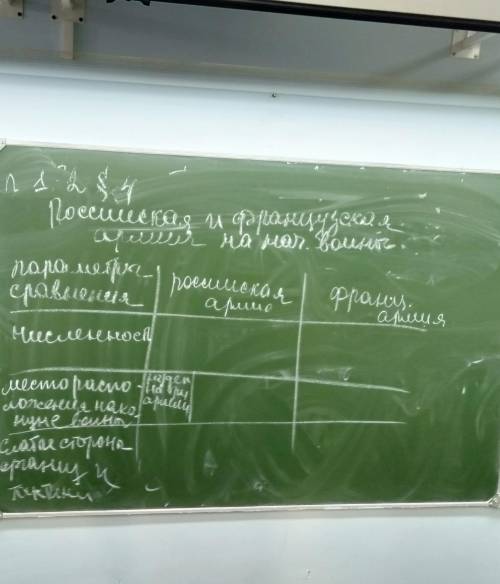 п 1-2 § 4
Российская и французская
армия на нач. войны.
параметры
сравнения
российская
армия
франц.
армия
Численность
место распо-
ложения нака-
нуне войны
раздел.
на три
армии
слабая сторона
организ и
тактики -